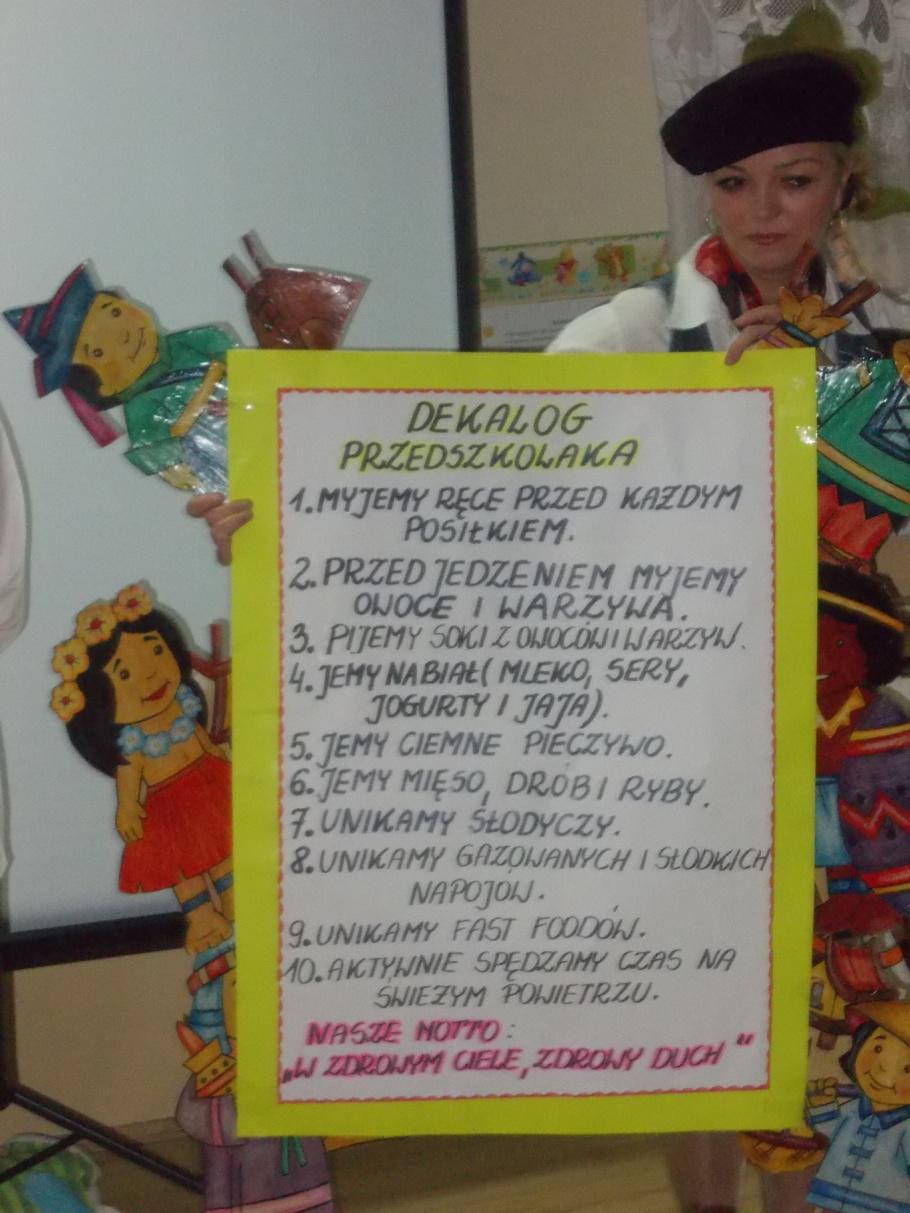 DEKALOG
PRZEDSZKOLAKA
1. MYJEMY RĘCE PRZED KAŻDYM
POSIŁKIEM.
2. PRZED JEDZENIEM MYJEMY
OWOCE I WARZYWA.
3. PIJEMY SOKI Z OWOCÓW I WARZYW.
4. JEMY NABIAŁ( MLEKO, SERY,
JOGURTY I JAJA).
5. JEMY CIEMNE PIECZYWO.
6. JEMY MIĘSO, DRÓB I RYBY.
7. UNIKAMY SŁODYCZY.
8. UNIKAMY GAZOWANYCH I SŁODKICH
NAPOJÓW.
9. UNIKAMY FAST FOODÓW.
10. AKTYWNIE SPĘDZAMY CZAS NA
ŚWIEŻYM POWIETRZU.
NASZE MOTTO:
„W ZDROWYM CIELE, ZDROWY DUCH"